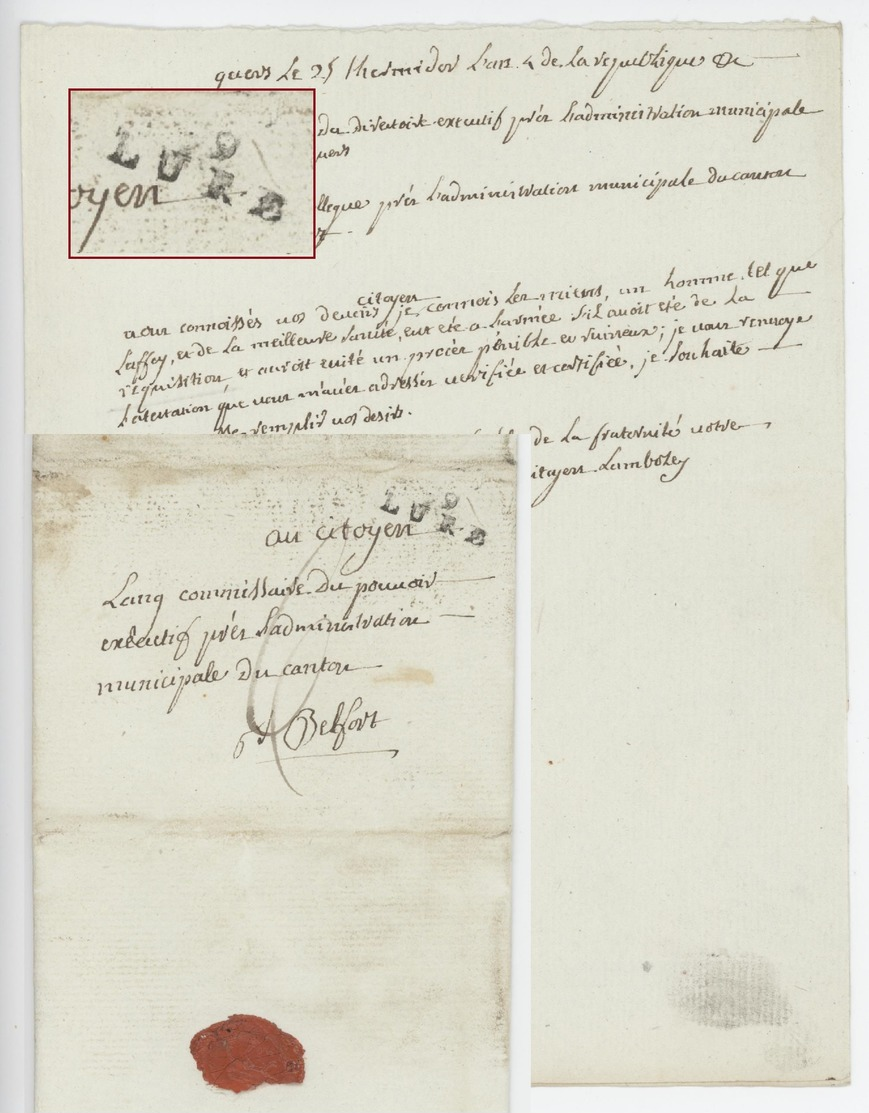 quers le 25 thermidor l'an 4 de la republique &c
du directoire executif prés l'administration municipale
quers
llegue prés l'administration municipale du canton
9
LURE
oyen
citoyen
vous connoissés vos devoirs, je connois les miens, un homme tel que
Laffoy, et de la meilleure santé, eut été a l'armée s'il avoit été de la
requisition, et auroit evité un procés pénible et ruineux; je vous renvoye
l'atestation que vous m'avés adressés verifiée et certifiée, je souhaite
remplir vos desirs.
de la fraternité votre
itoyen Lamboley
9
LURE
au citoyen
Lang commissaire du pouvoir
exécutif prés l'administration
municipale du canton
6 d Belfort